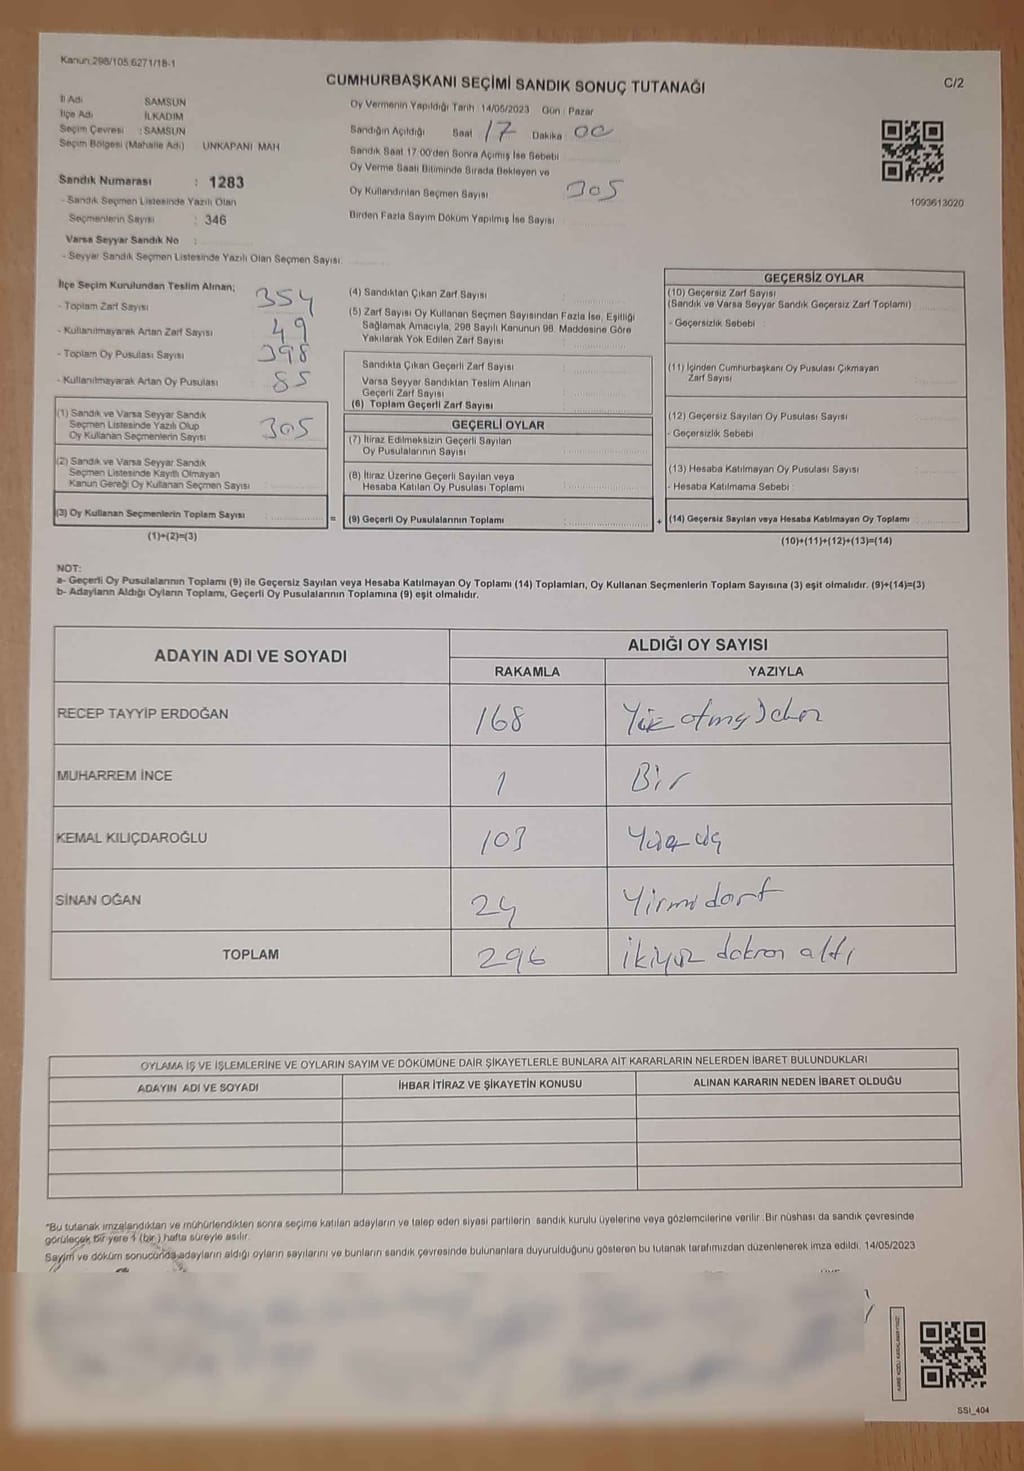 Kanun:298/105.6271/18-1
CUMHURBAŞKANI SEÇİMİ SANDIK SONUÇ TUTANAĞI
C/2
İl Adı SAMSUN
İlçe Adı İLKADIM
Seçim Çevresi : SAMSUN
Seçim Bölgesi (Mahalle Adı) UNKAPANI MAH
Sandık Numarası : 1283
- Sandık Seçmen Listesinde Yazılı Olan
Seçmenlerin Sayısı : 346
Varsa Seyyar Sandık No :
- Seyyar Sandık Seçmen Listesinde Yazılı Olan Seçmen Sayısı:
Oy Vermenin Yapıldığı Tarih : 14/05/2023 Gün : Pazar
Sandığın Açıldığı Saat 17 Dakika 00
Sandık Saat 17:00'den Sonra Açımış İse Sebebi
Oy Verme Saati Bitiminde Sırada Bekleyen ve
Oy Kullandırılan Seçmen Sayısı 305
Birden Fazla Sayım Döküm Yapılmış İse Sayısı
1093613020
İlçe Seçim Kurulundan Teslim Alınan;
- Toplam Zarf Sayısı 354
- Kullanılmayarak Artan Zarf Sayısı 49
- Toplam Oy Pusulası Sayısı 398
- Kullanılmayarak Artan Oy Pusulası 85
(1) Sandık ve Varsa Seyyar Sandık
Seçmen Listesinde Yazılı Olup
Oy Kullanan Seçmenlerin Sayısı 305
(2) Sandık ve Varsa Seyyar Sandık
Seçmen Listesinde Kayıtlı Olmayan
Kanun Gereği Oy Kullanan Seçmen Sayısı
(3) Oy Kullanan Seçmenlerin Toplam Sayısı : =
(1)+(2)=(3)
(4) Sandıktan Çıkan Zarf Sayısı
(5) Zarf Sayısı Oy Kullanan Seçmen Sayısından Fazla İse, Eşitliği
Sağlamak Amacıyla, 298 Sayılı Kanunun 98. Maddesine Göre
Yakılarak Yok Edilen Zarf Sayısı
Sandıkta Çıkan Geçerli Zarf Sayısı
Varsa Seyyar Sandıktan Teslim Alınan
Geçerli Zarf Sayısı
(6) Toplam Geçerli Zarf Sayısı
GEÇERLİ OYLAR
(7) İtiraz Edilmeksizin Geçerli Sayılan
Oy Pusulalarının Sayısı
(8) İtiraz Üzerine Geçerli Sayılan veya
Hesaba Katılan Oy Pusulası Toplamı
(9) Geçerli Oy Pusulalarının Toplamı : +
GEÇERSİZ OYLAR
(10) Geçersiz Zarf Sayısı
(Sandık ve Varsa Seyyar Sandık Geçersiz Zarf Toplamı)
- Geçersizlik Sebebi :
(11) İçinden Cumhurbaşkanı Oy Pusulası Çıkmayan
Zarf Sayısı
(12) Geçersiz Sayılan Oy Pusulası Sayısı
- Geçersizlik Sebebi :
(13) Hesaba Katılmayan Oy Pusulası Sayısı
- Hesaba Katılmama Sebebi :
(14) Geçersiz Sayılan veya Hesaba Katılmayan Oy Toplamı :
(10)+(11)+(12)+(13)=(14)
NOT:
a- Geçerli Oy Pusulalarının Toplamı (9) ile Geçersiz Sayılan veya Hesaba Katılmayan Oy Toplamı (14) Toplamları, Oy Kullanan Seçmenlerin Toplam Sayısına (3) eşit olmalıdır. (9)+(14)=(3)
b- Adayların Aldığı Oyların Toplamı, Geçerli Oy Pusulalarının Toplamına (9) eşit olmalıdır.
ADAYIN ADI VE SOYADI
ALDIĞI OY SAYISI
RAKAMLA YAZIYLA
RECEP TAYYİP ERDOĞAN 168
MUHARREM İNCE 1 Bir
KEMAL KILIÇDAROĞLU 103 Yüz üç
SİNAN OĞAN 24 Yirmi dört
TOPLAM 296 ikiyüz doksan altı
OYLAMA İŞ VE İŞLEMLERİNE VE OYLARIN SAYIM VE DÖKÜMÜNE DAİR ŞİKAYETLERLE BUNLARA AİT KARARLARIN NELERDEN İBARET BULUNDUKLARI
ADAYIN ADI VE SOYADI İHBAR İTİRAZ VE ŞİKAYETİN KONUSU ALINAN KARARIN NEDEN İBARET OLDUĞU
*Bu tutanak imzalandıktan ve mühürlendikten sonra seçime katılan adayların ve talep eden siyasi partilerin sandık kurulu üyelerine veya gözlemcilerine verilir. Bir nüshası da sandık çevresinde
görülecek bir yere 1 (bir) hafta süreyle asılır.
Sayım ve döküm sonucunda adayların aldığı oyların sayılarını ve bunların sandık çevresinde bulunanlara duyurulduğunu gösteren bu tutanak tarafımızdan düzenlenerek imza edildi. 14/05/2023
SSI_404